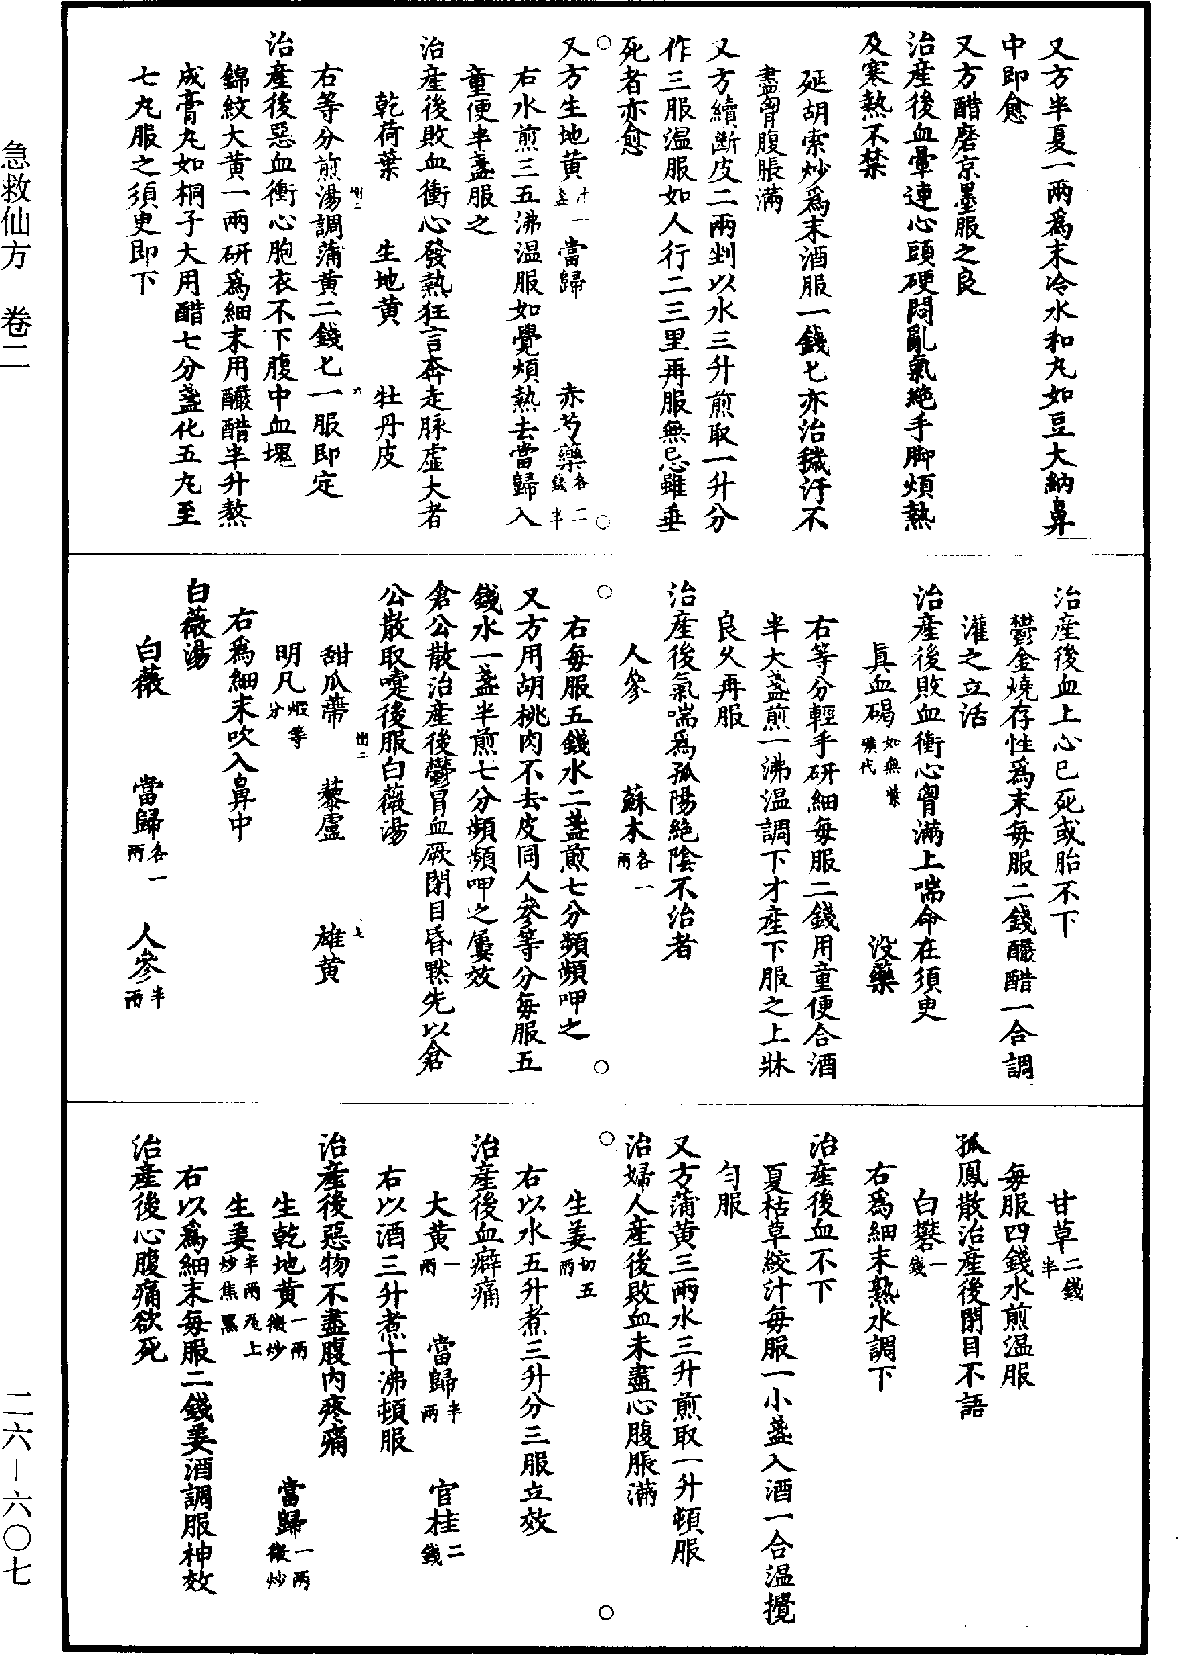 又方半夏一兩爲末冷水和丸如豆大納鼻
中即愈
又方醋磨京墨服之良
治產後血暈連心頭硬悶亂氣絶手脚煩熱
及寒熱不禁
延胡索炒爲末酒服一錢匕亦治穢汙不
盡胷腹脹滿
又方續斷皮二兩剉以水三升煎取一升分
作三服温服如人行二三里再服無忌雖垂
死者亦愈
又方生地黄 當歸 赤芍藥各二錢半
右水煎三五沸温服如覺煩熱去當歸入
童便半盞服之
治產後敗血衝心發熱狂言奔走脉虚大者
乾荷葉 生地黄 牡丹皮
右等分煎湯調蒲黄二錢匕一服即定
治產後惡血衝心胞衣不下腹中血塊
錦紋大黄一兩研爲細末用釅醋半升熬
成膏丸如桐子大用醋七分盞化五丸至
七丸服之須臾即下
治產後血上心已死或胎不下
鬱金燒存性爲末每服二錢釅醋一合調
灌之立活
治產後敗血衝心胷滿上喘命在須臾
眞血碣如無紫礦代 没藥
右等分輕手研細每服二錢用童便合酒
半大盞煎一沸温調下才產下服之上牀
良乆再服
治產後氣喘爲孤陽絶陰不治者
人參 蘇木各一兩
右每服五錢水二盞煎七分頻頻呷之
又方用胡桃肉不去皮同人參等分每服五
錢水一盞半煎七分頻頻呷之屢效
倉公散治產後鬱冒血厥閉目昏黙先以倉
公散取嚏後服白薇湯
甜瓜蔕 藜蘆 雄黄
明凡煆等分
右爲細末吹入鼻中
白薇湯
白薇 當歸各一兩 人參半兩
甘草二錢半
每服四錢水煎温服
孤鳳散治產後閉目不語
白礬一錢
右爲細末熟水調下
治產後血不下
夏枯草絞汁每服一小盞入酒一合温攪
勻服
又方蒲黄三兩水三升煎取一升頓服
治婦人產後敗血未盡心腹脹滿
生姜切五兩
右以水五升煮三升分三服立效
治產後血癖痛
大黄一兩 當歸半兩 官桂二錢
右以酒三升煮十沸頓服
治產後惡物不盡腹内疼痛
生乾地黄一兩微炒 當歸一兩微炒
生姜半兩瓦上炒焦黑
右以爲細末每服二錢姜酒調服神效
治產後心腹痛欲死
急救仙方 卷二
二六—六〇七